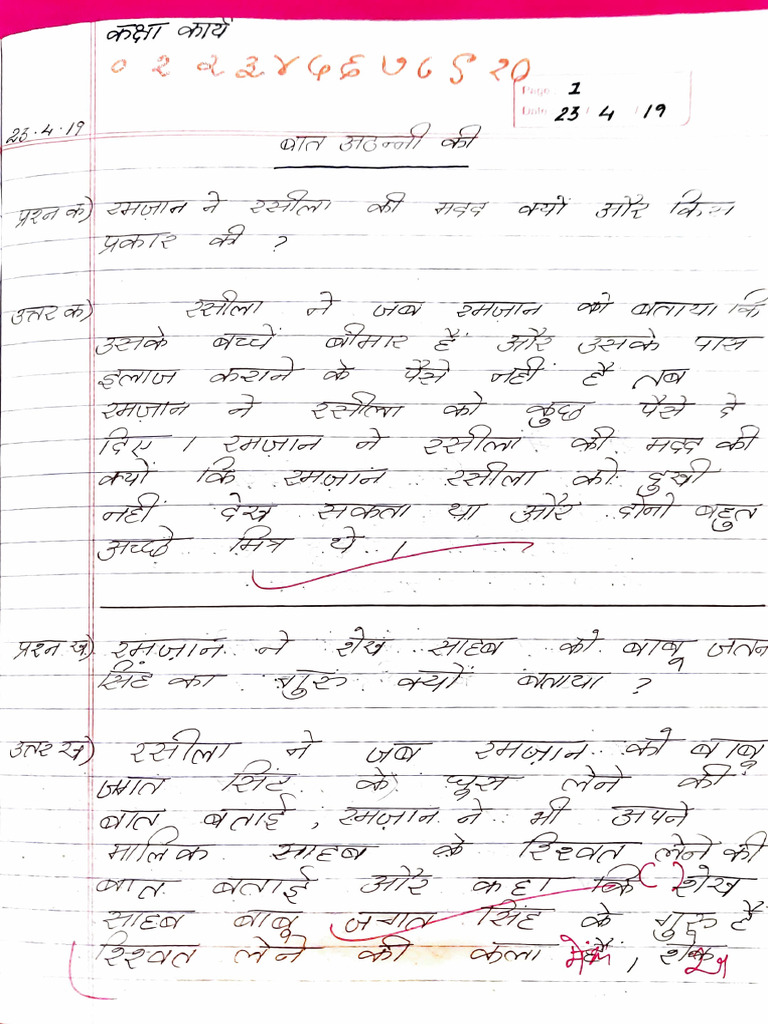 कक्षा कार्य
० १ २ ३ ४ ५ ६ ७ ८ ९ १०
Page 1
Date 23 / 4 / 19
23.4.19
बात अठन्नी की
प्रश्न क) रमज़ान ने रसीला की मदद क्यों और किस
प्रकार की ?
उत्तर क) रसीला ने जब रमज़ान को बताया कि
उसके बच्चें बीमार हैं और उसके पास
इलाज कराने के पैसे नहीं है तब
रमज़ान ने रसीला को कुछ पैसे दे
दिए । रमज़ान ने रसीला की मदद की
क्यों कि रमज़ान रसीला को दुखी
नहीं देख सकता था और दोनो बहुत
अच्छे मित्र थे ।
प्रश्न ख) रमज़ान ने शेख साहब को बाबू जतन
सिंह का गुरु क्यों बताया ?
उत्तर ख) रसीला ने जब रमज़ान को बाबू
जगत सिंह के घुस लेने की
बात बताई , रमज़ान ने भी अपने
मालिक साहब के रिश्वत लेने की
बात बताई और कहा कि शेख
साहब बाबू जगत सिंह के गुरु हैं
रिश्वत लेने की कला में ,